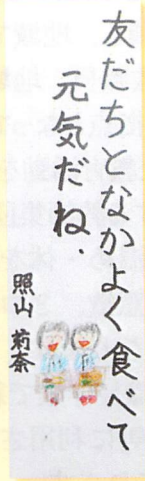 友だちとなかよく食べて
元気だね.
照山 莉奈